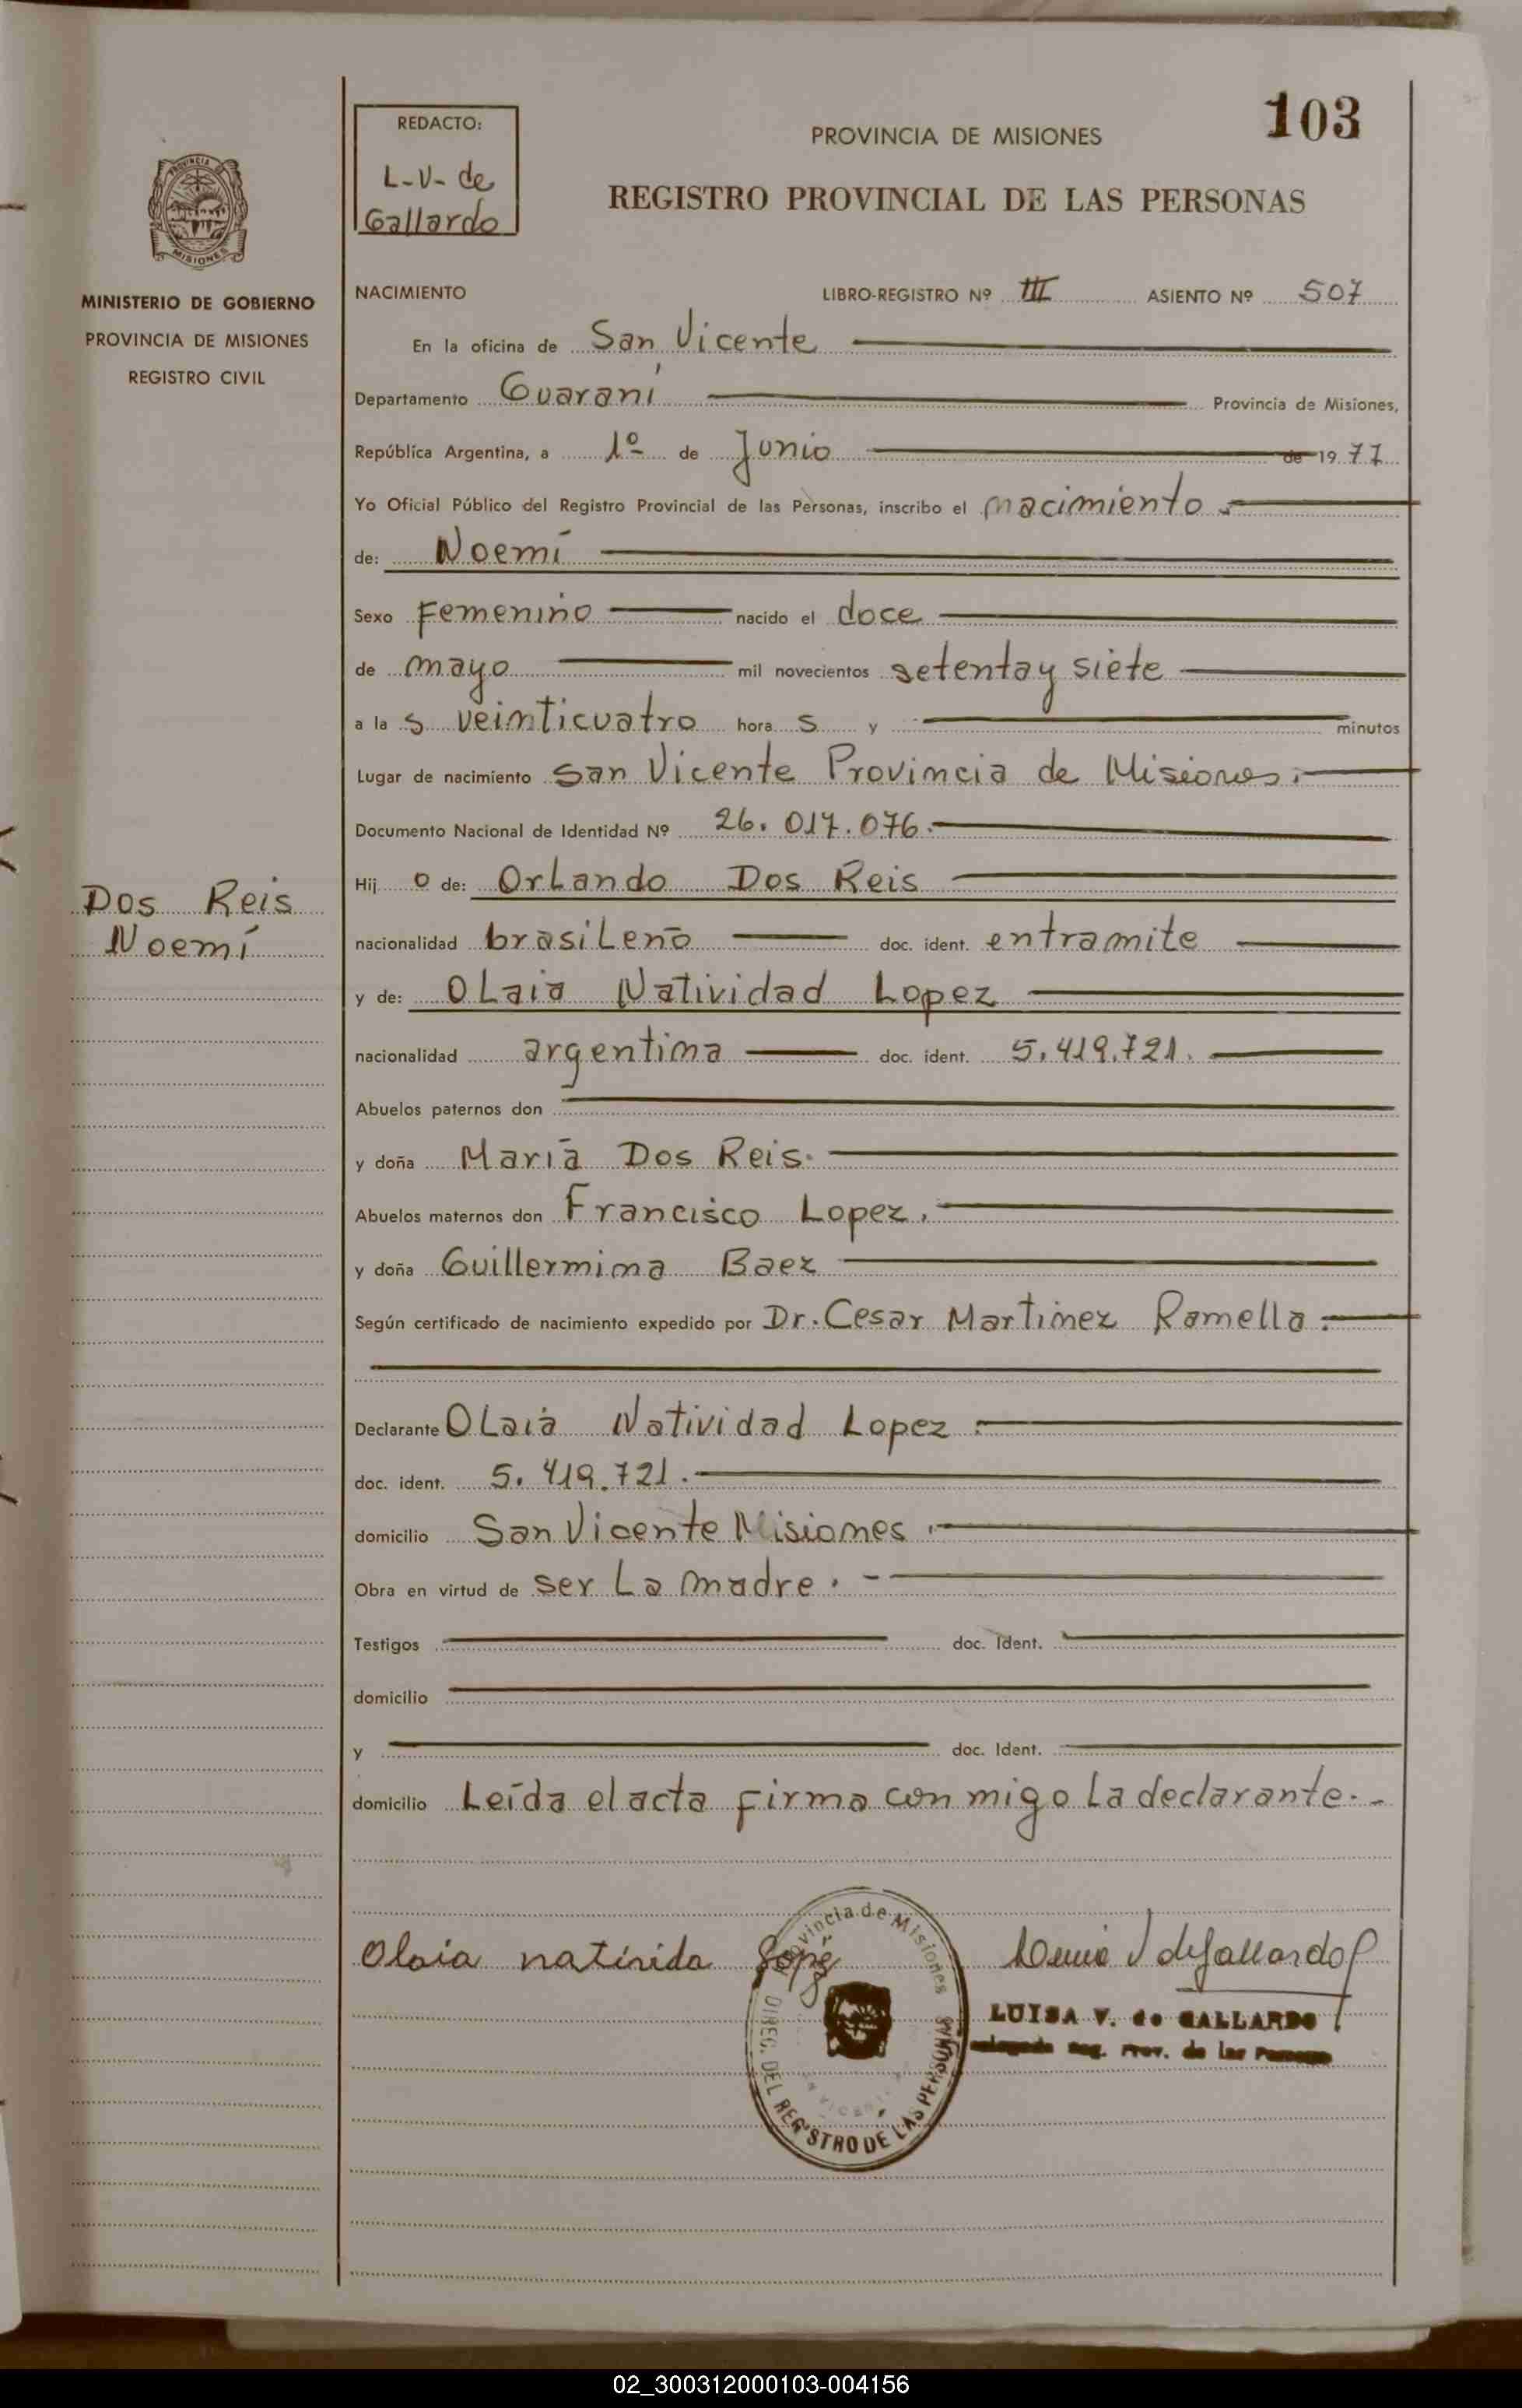 103
REDACTO:
L-V- de
Gallardo
PROVINCIA DE MISIONES
REGISTRO PROVINCIAL DE LAS PERSONAS
PROVINCIA DE
MISIONES
MINISTERIO DE GOBIERNO
PROVINCIA DE MISIONES
REGISTRO CIVIL
NACIMIENTO LIBRO-REGISTRO Nº III ASIENTO Nº 507
En la oficina de San Vicente
Departamento Guaraní Provincia de Misiones,
República Argentina, a 1º de Junio de 19 77
Yo Oficial Público del Registro Provincial de las Personas, inscribo el nacimiento
de: Noemí
Sexo Femenino nacido el doce
de mayo mil novecientos setenta y siete
a la s veinticuatro hora s y minutos
Lugar de nacimiento San Vicente Provincia de Misiones.
Documento Nacional de Identidad Nº 26.017.076.
Hij o de: Orlando Dos Reis
Dos Reis
Noemí
nacionalidad brasileño doc. ident. entramite
y de: Olaia Natividad Lopez
nacionalidad argentina doc. ident. 5.419.721.
Abuelos paternos don
y doña María Dos Reis.
Abuelos maternos don Francisco Lopez.
y doña Guillermina Baez
Según certificado de nacimiento expedido por Dr. Cesar Martinez Ramella.
Declarante Olaia Natividad Lopez.
doc. ident. 5.419.721.
domicilio San Vicente Misiones.
Obra en virtud de ser La madre. -
Testigos doc. Ident.
domicilio
y doc. Ident.
domicilio Leída el acta firma con migo La declarante.-
Olaia natinida Lopé
Provincia de Misiones
DIREC. DEL REGISTRO DE LAS PERSONAS
de Gallardo
LUISA V. de GALLARDO
Reg. Prov. de las Personas
02_300312000103-004156